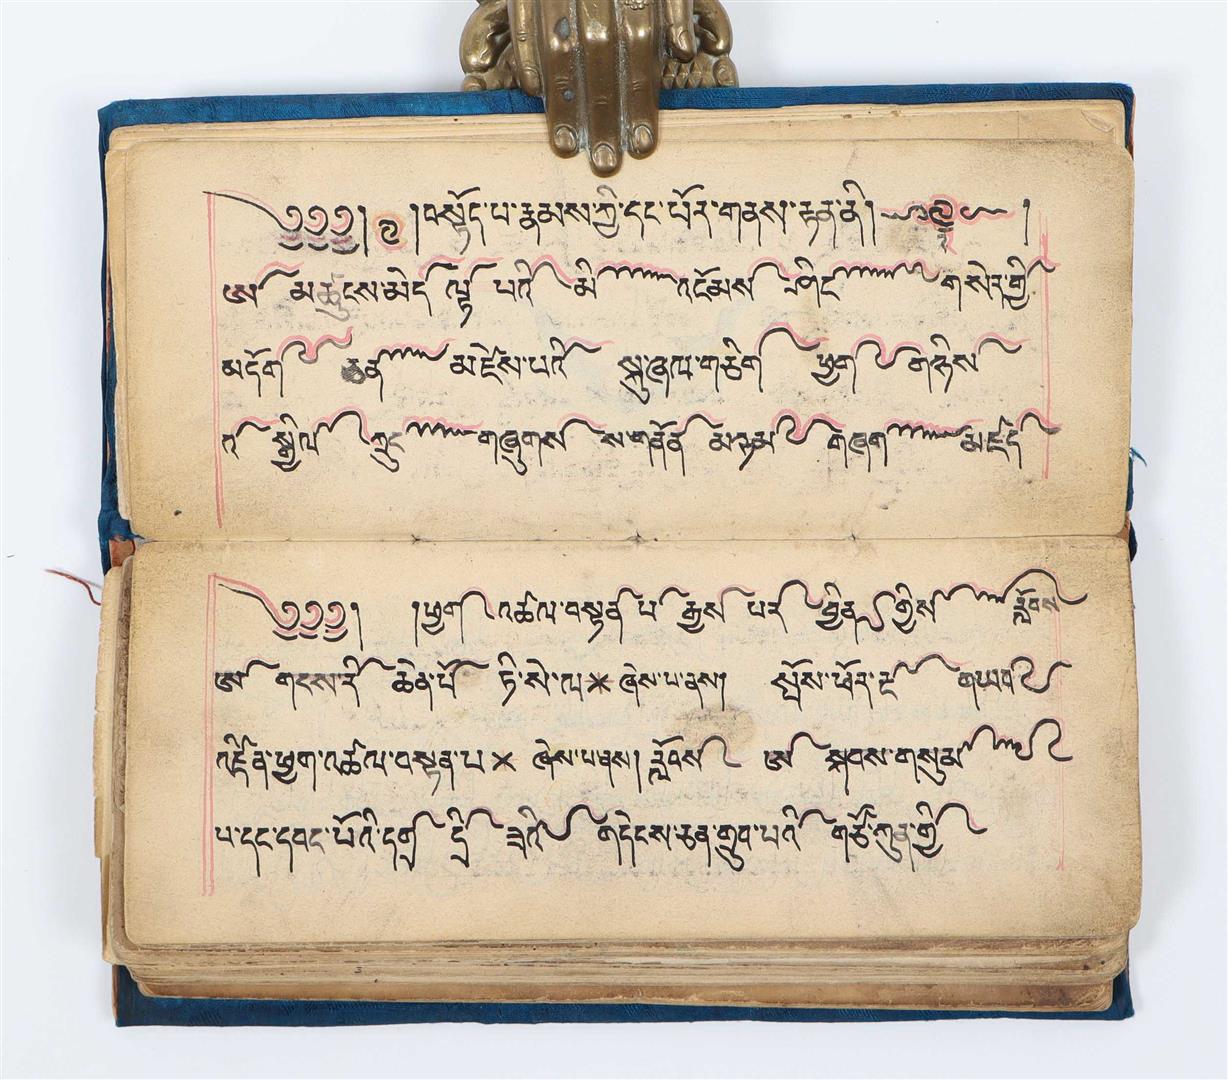 ༄༅༅། །བསྟོད་པ་རྣམས་ཀྱི་དང་པོར་གནས་རྟན་ནི།
ཨ མཚུངས་མེད་ལྟ པའི མི འཇོམས ཤིང གསེར་གྱི
མདོག ཅན མཛེས་པའི སྐུ་ཞལ་གཅིག ཕྱག གཉིས
འ སྐྱིལ ཀྲུང གཞུགས ས་གནོན མཉམ གཞག མཛད
༄༅༅། །ཕྱག འཚལ་བསྟན པ རྒྱས པར ཕྱིན གྱིས རློབས
ཨ གངས་རི ཆེན་པོ ཏི་སེ་ལ × ཞེས་པ་ནས། སྤོས་ཕོར་ གཡབ
འཛིན་ཕྱག་འཚལ་བསྟན་པ × ཞེས་པ་ནས། རློབས ཨ སྐབས་གསུམ
པ་དང་དབང་པོའི་དགྲ དྲི ཟའི གདེངས་ཅན་གྲུབ་པའི གཙོ་ཀུན་གྱི